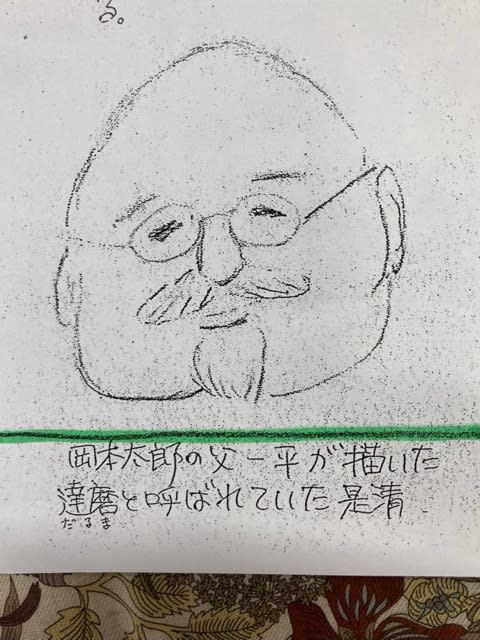 る。
岡本太郎の父一平が描いた
達磨と呼ばれていた是清
だるま